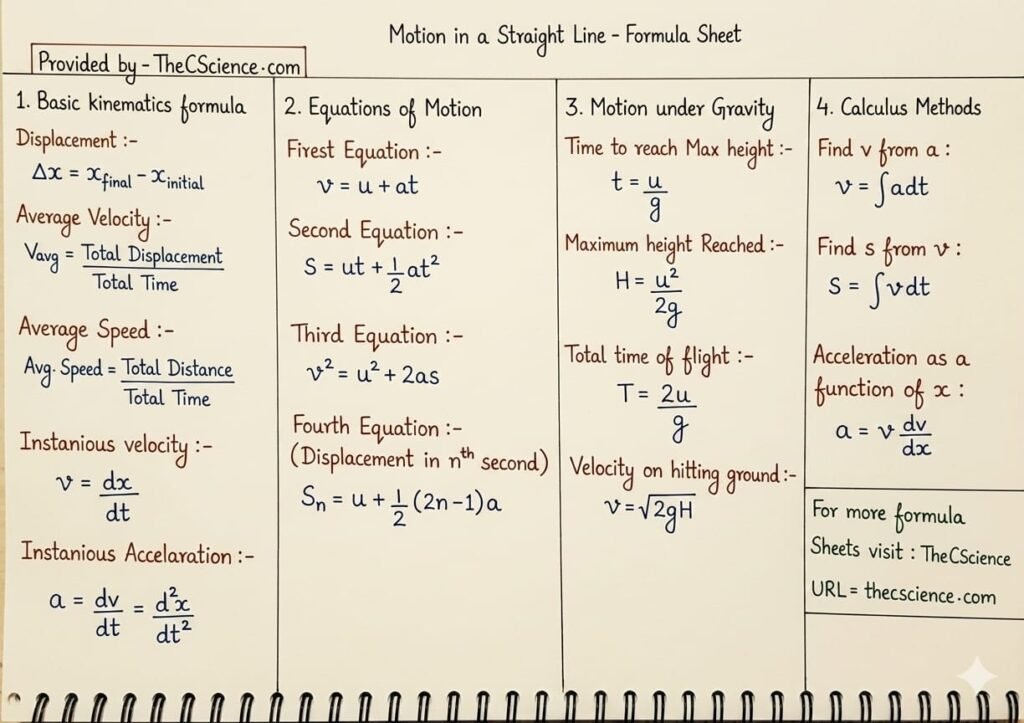 Motion in a Straight Line - Formula Sheet
Provided by - TheCScience.com
1. Basic kinematics formula
Displacement :-
Δx = x_final - x_initial
Average Velocity :-
Vavg = Total Displacement / Total Time
Average Speed :-
Avg. Speed = Total Distance / Total Time
Instanious velocity :-
v = dx/dt
Instanious Accelaration :-
a = dv/dt = d²x/dt²
2. Equations of Motion
Firest Equation :-
v = u + at
Second Equation :-
S = ut + 1/2 at²
Third Equation :-
v² = u² + 2as
Fourth Equation :-
(Displacement in nth second)
Sn = u + 1/2 (2n-1)a
3. Motion under Gravity
Time to reach Max height :-
t = u/g
Maximum height Reached :-
H = u²/2g
Total time of flight :-
T = 2u/g
Velocity on hitting ground :-
v = √2gH
4. Calculus Methods
Find v from a :
v = ∫adt
Find s from v :
S = ∫vdt
Acceleration as a
function of x :
a = v dv/dx
For more formula
Sheets visit : TheCScience
URL = thecscience.com